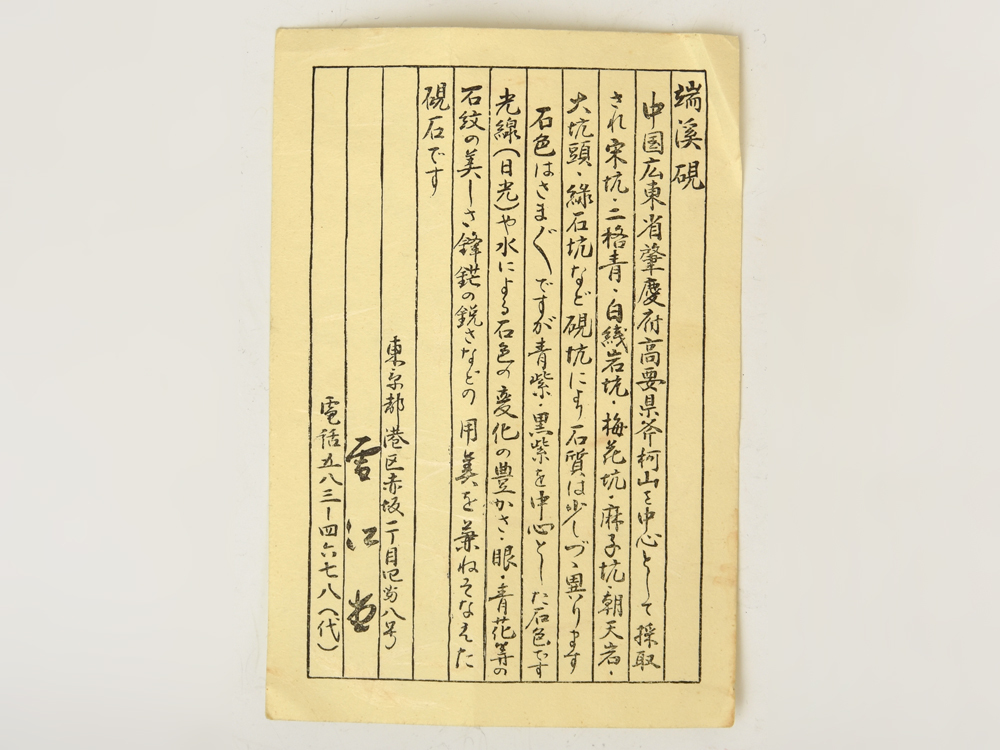 端溪硯
中国広東省肇慶府高要県斧柯山を中心として採取
され宋坑・二格青・白綫岩坑・梅花坑・麻子坑・朝天岩・
大坑頭・緑石坑など硯坑により石質は少しづゝ異ります
石色はさま〲ですが青紫・黒紫を中心とした石色です
光線(日光)や水による石色の変化の豊かさ・眼・青花等の
石紋の美しさ・鋒鋩の鋭さなどの用美を兼ねそなえた
硯石です
東京都港区赤坂一丁目四番八号
雪江堂
電話五八三ー四六七八(代)